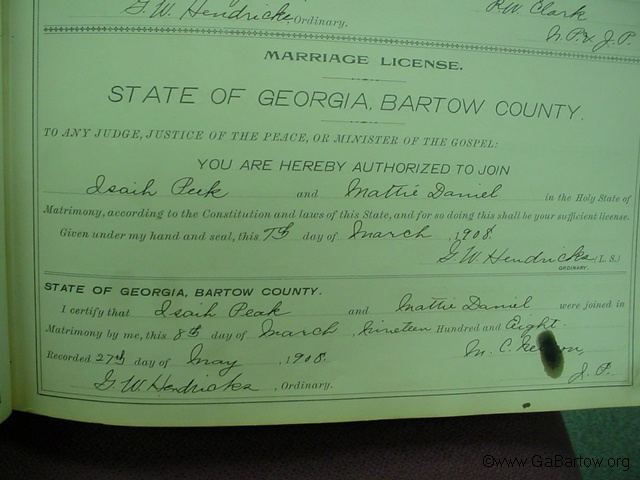 G. W. Hendricks, Ordinary.
R. W. Clark
N. P. & J. P.
MARRIAGE LICENSE.
STATE OF GEORGIA, BARTOW COUNTY.
TO ANY JUDGE, JUSTICE OF THE PEACE, OR MINISTER OF THE GOSPEL:
YOU ARE HEREBY AUTHORIZED TO JOIN
Isaih Peek and Mattie Daniel in the Holy State of
Matrimony, according to the Constitution and laws of this State, and for so doing this shall be your sufficient license.
Given under my hand and seal, this 7th day of March, 1908.
G. W. Hendricks (L. S.)
ORDINARY.
STATE OF GEORGIA, BARTOW COUNTY.
I certify that Isaih Peak and Mattie Daniel were joined in
Matrimony by me, this 8th day of March, Nineteen Hundred and Eight.
Recorded 27th day of May, 1908.
M. C.
J. P.
G. W. Hendricks, Ordinary.
©www.GaBartow.org